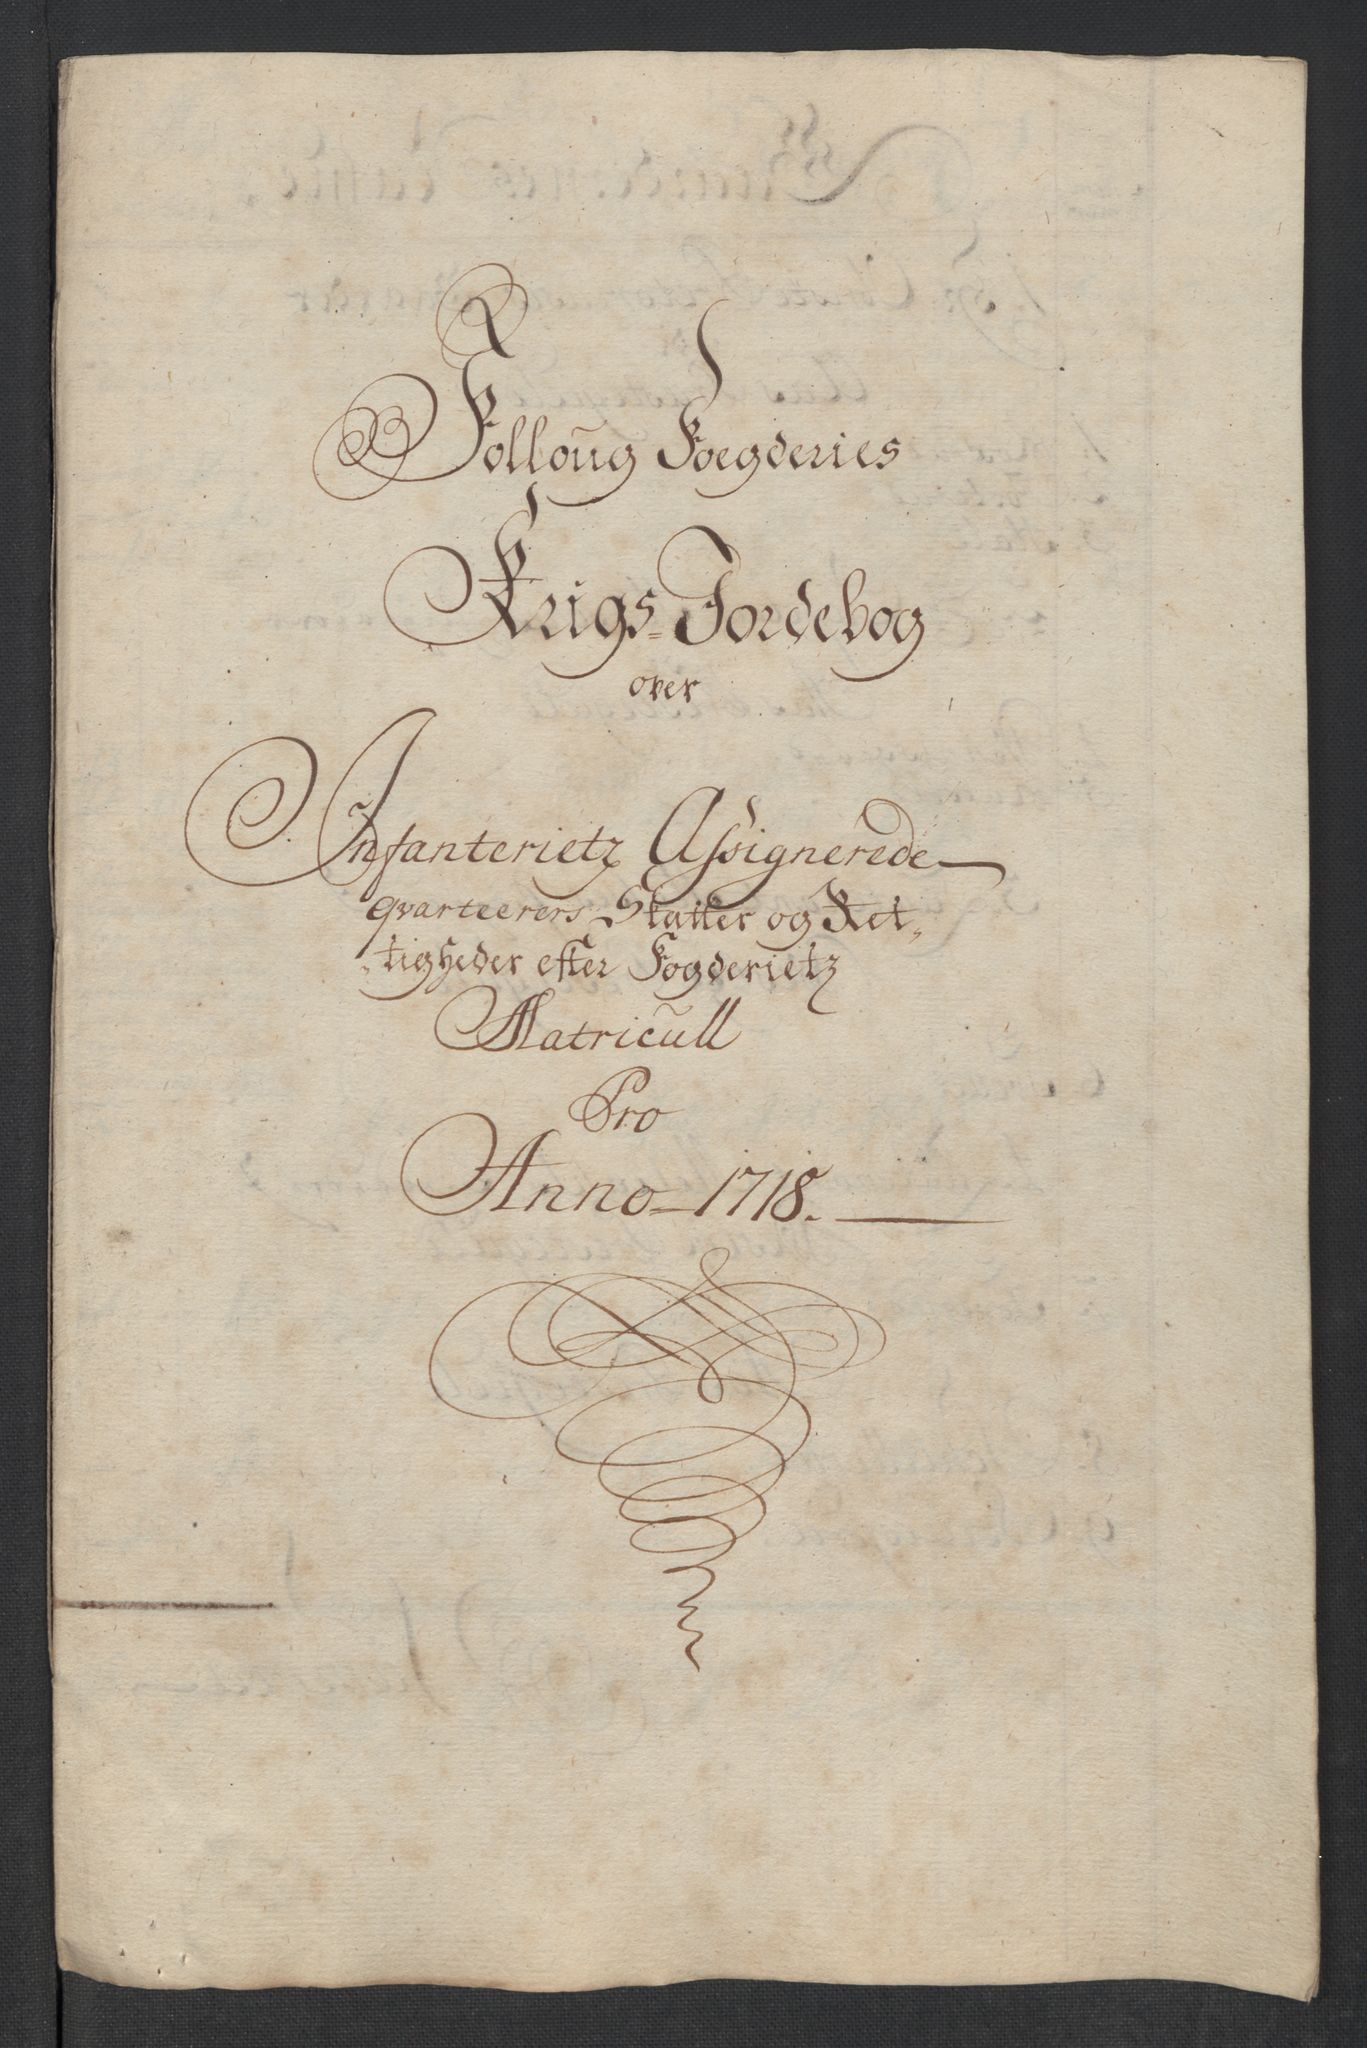 Folloug Foegderies
Krigs=Jordebog
over
Infanterietz Assignerede
qvarteerers Skatter og Ret=
=tigheder efter Fogderietz
Matricull
Pro
Anno=1718.